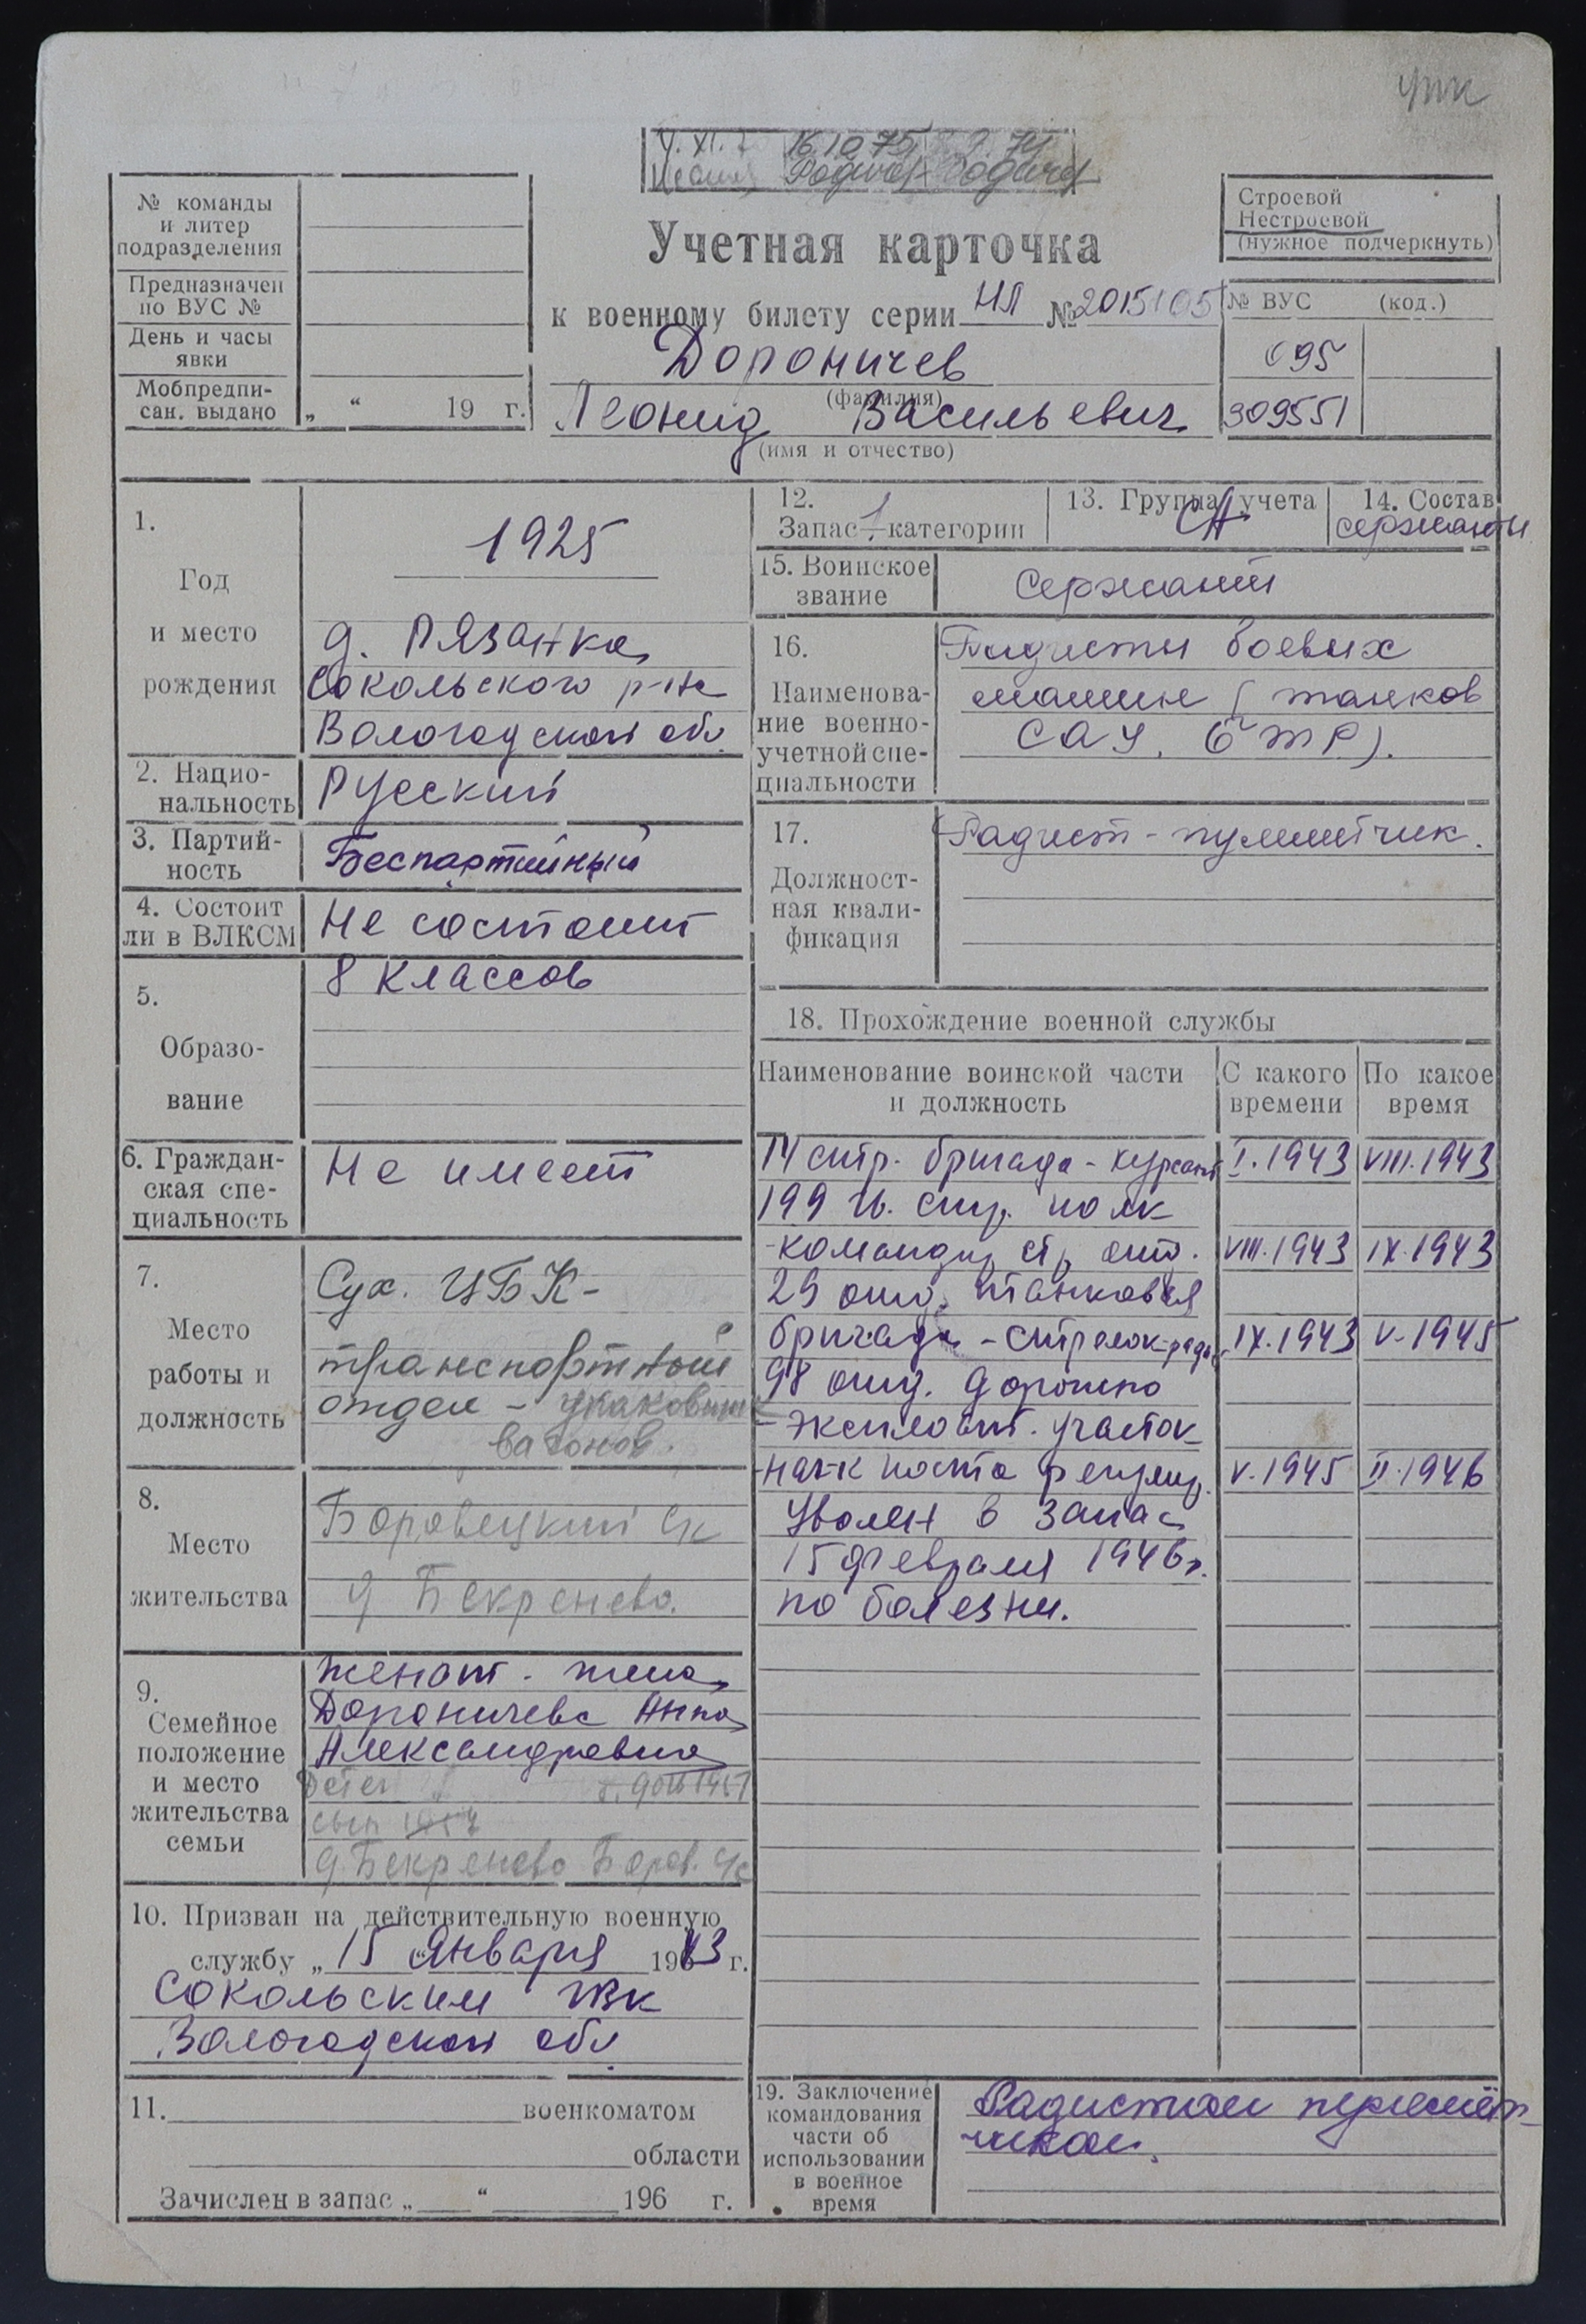 утк
16.10.75
№ команды
и литер
подразделения
Предназначен
по ВУС №
День и часы
явки
Мобпредпи-
сан. выдано „ “ 19 г.
Учетная карточка
к военному билету серии НЛ № 2015105
Дороничев
(фамилия)
Леонид Васильевич
(имя и отчество)
Строевой
Нестроевой
(нужное подчеркнуть)
№ ВУС (код.)
095
309551
1.
Год
и место
рождения
1925
д. Рязанка
Сокольского р-на
Вологодской обл.
2. Нацио-
нальность
Русский
3. Партий-
ность
Беспартийный
4. Состоит
ли в ВЛКСМ
Не состоит
5.
Образо-
вание
8 классов
6. Граждан-
ская спе-
циальность
Не имеет
7.
Место
работы и
должность
Сух. ЦБК-
транспортный
отдел -
вагонов.
8.
Место
жительства
Боровецкий с/с
д Бекренево.
9.
Семейное
положение
и место
жительства
семьи
женат. жена
Дороничева Анна
Александровна
Дети
сын
д. Бекренево Боров. с/с
10. Призван на действительную военную
службу „ 15 “ Января 1943 г.
Сокольским РВК
Вологодской обл.
11. военкоматом
области
Зачислен в запас „ “ 196 г.
12.
Запас 1 категории
13. Группа учета
СА
14. Состав
сержанты
15. Воинское
звание
Сержант
16.
Наименова-
ние военно-
учетной спе-
циальности
Радисты боевых
машин (танков
САУ, БТР).
17.
Должност-
ная квали-
фикация
Радист-пулеметчик.
18. Прохождение военной службы
Наименование воинской части
и должность
С какого
времени
По какое
время
14 стр. бригада - курсант I.1943 VIII.1943
199 гв. стр. полк
-командир стр. отд. VIII.1943 IX.1943
29 отд. танковая
бригада - стрелок-рад. IX.1943 V-1945
98 отд. дорожно
-эксплоат. участок
-нач-к поста регулир. V.1945 II.1946
Уволен в запас
15 февраля 1946г.
по болезни.
19. Заключение
командования
части об
использовании
в военное
время
Радистом пулемёт-
чиком.